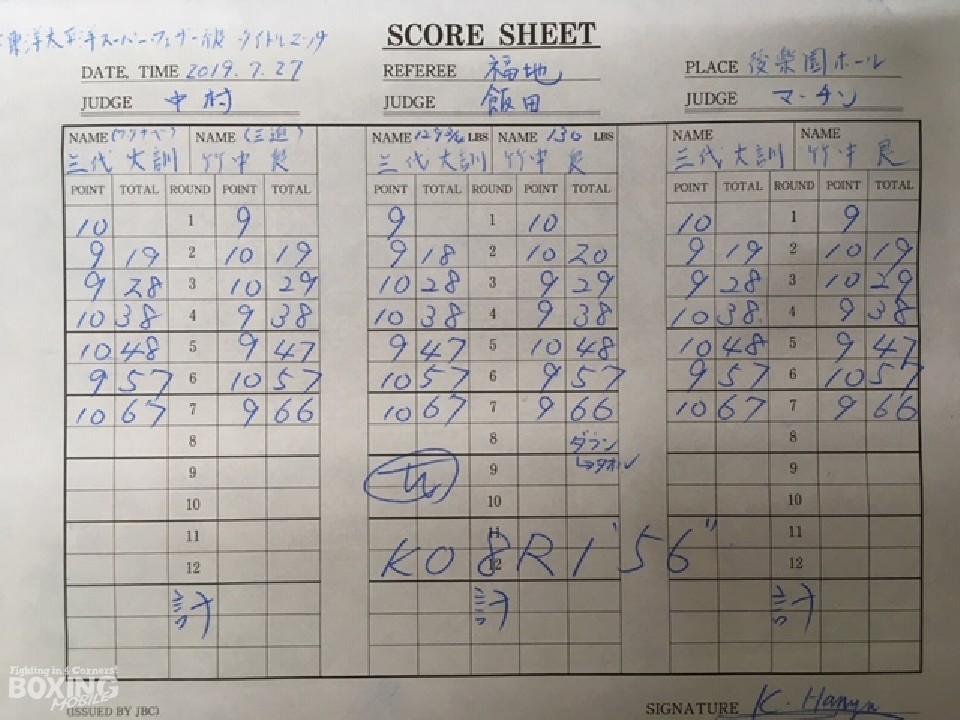 東洋太平洋スーパーフェザー級 タイトルマッチ
SCORE SHEET
DATE, TIME 2019.7.27 REFEREE 福地 PLACE 後楽園ホール
JUDGE 中村 JUDGE 飯田 JUDGE マーチン
NAME (ワタナベ) NAME (三迫) NAME LBS NAME 130 LBS NAME NAME
三代 大訓 竹中 良 三代 大訓 竹中 良 三代 大訓 竹中 良
POINT TOTAL ROUND POINT TOTAL POINT TOTAL ROUND POINT TOTAL POINT TOTAL ROUND POINT TOTAL
10 1 9 9 1 10 10 1 9
9 19 2 10 19 9 18 2 10 20 9 19 2 10 19
9 28 3 10 29 10 28 3 9 29 9 28 3 10 29
10 38 4 9 38 10 38 4 9 38 10 38 4 9 38
10 48 5 9 47 9 47 5 10 48 10 48 5 9 47
9 57 6 10 57 10 57 6 9 57 9 57 6 10 57
10 67 7 9 66 10 67 7 9 66 10 67 7 9 66
8 8 ダウン 8
9 9 →タオル 9
10 10 10
11 11 11
KO 8R 1'56"
12 12 12
計 計 計
Fighting in 4 Corners'
BOXING
MOBILE
(ISSUED BY JBC) SIGNATURE K. Hanyu